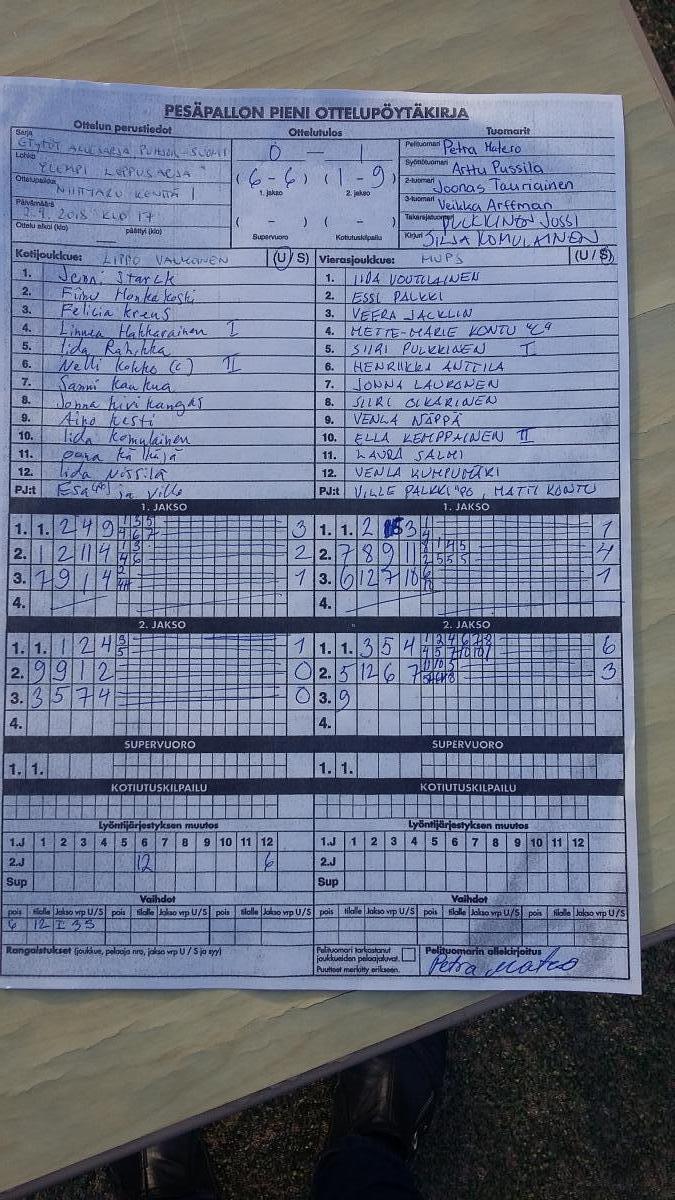 PESÄPALLON PIENI OTTELUPÖYTÄKIRJA
Ottelun perustiedot Ottelutulos Tuomarit
Sarja
Lohko
YLEMPI LOPPUSARJA
Ottelupaikka NIITTARU KENTTÄ 1
Päivämäärä 2.9.2018 KLO 17
Ottelu alkoi (klo) päättyi (klo)
0 – 1
(6–6) (1–9)
1. jakso 2. jakso
( – ) ( – )
Supervuoro Kotiutuskilpailu
Pelituomari Petra Matero
Syöttötuomari Arttu Pussila
2-tuomari Joonas Tauriainen
3-tuomari Veikka Arffman
Takarajatuomari PULKKINEN JUSSI
Kirjuri SILJA KOMULAINEN
Kotijoukkue: LIPPO (U/S) Vierasjoukkue: MUPS (U/S)
1. Jenni Starck 1. IIDA VOUTILAINEN
2. Fiinu Honkakoski 2. ESSI PALKKI
3. Felicia Kreus 3. VEERA JACKLIN
4. Linnea Hakkarainen I 4. METTE-MARIE KONTU "C"
5. Iida Rahikka 5. SIIRI PULKKINEN I
6. Nelli Kokko (c) II 6. HENRIIKKA ANTTILA
7. Sanni Kaukua 7. JONNA LAUKONEN
8. Jonna Kivikangas 8. SIIRI OLKARINEN
9. Aino Kesti 9. VENLA NÄPPÄ
10. Iida Komulainen 10. ELLA KEMPPAINEN II
11. Oona 11. LAURA SALMI
12. Iida Nissilä 12. VENLA KUMPUMÄKI
PJ:t Esa ja Ville PJ:t VILLE PALKKI "PO", MATTI KONTU
1. JAKSO 1. JAKSO
1. 1. 2 4 9 3 1. 1. 2 3 1
2. 1 2 11 4 2 2. 7 8 9 11 4
3. 7 9 1 4 1 3. 6 12 7 10 1
4. 4.
2. JAKSO 2. JAKSO
1. 1. 1 2 4 3 5 1 1. 1. 3 5 4 6
2. 9 9 1 2 0 2. 5 12 6 7 3
3. 3 5 7 4 0 3. 9
4. 4.
SUPERVUORO SUPERVUORO
1. 1. 1. 1.
KOTIUTUSKILPAILU KOTIUTUSKILPAILU
Lyöntijärjestyksen muutos Lyöntijärjestyksen muutos
1.J 1 2 3 4 5 6 7 8 9 10 11 12 1.J 1 2 3 4 5 6 7 8 9 10 11 12
2.J 12 6 2.J
Sup Sup
Vaihdot Vaihdot
pois tilalle Jakso vrp U/S pois tilalle Jakso vrp U/S pois tilalle Jakso vrp U/S pois tilalle Jakso vrp U/S pois tilalle Jakso vrp U/S pois tilalle Jakso vrp U/S
6 12 I 3 S
Rangaistukset (joukkue, pelaaja nro, jakso vrp U / S ja syy)
Pelituomari tarkastanut joukkueiden pelaajaluvat.
Puutteet merkitty erikseen.
Pelituomarin allekirjoitus
Petra Matero